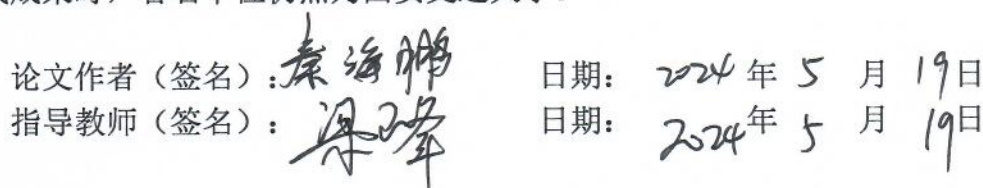 论文作者（签名）：秦海鹏 日期： 2024年 5 月 19日
指导教师（签名）：梁 峰 日期： 2024年 5 月 19日